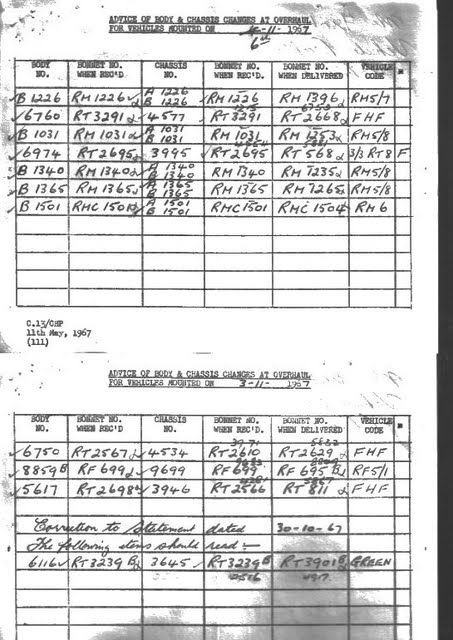 ADVICE OF BODY & CHASSIS CHANGES AT OVERHAUL
FOR VEHICLES MOUNTED ON 6th -11- 1967
BODY NO. BONNET NO. WHEN REC'D. CHASSIS NO. BONNET NO. WHEN REC'D. BONNET NO. WHEN DELIVERED VEHICLE CODE
B 1226 RM 1226 A 1226 B 1226 RM 1226 RM 1396 RM5/7
6760 RT 3291 4577 RT 3291 RT 2668 FHF
B 1031 RM 1031 A 1031 B 1031 RM 1031 RM 1253 RM5/8
6974 RT 2695 3995 RT 2695 RT 568 3/3 RT8 F
B 1340 RM 1340 A 1340 B 1340 RM 1340 RM 1235 RM5/8
B 1365 RM 1365 A 1365 B 1365 RM 1365 RM 1265 RM5/8
B 1501 RMC 1501 A 1501 B 1501 RMC 1501 RMC 1504 RM 6
C.13/CHP
11th May, 1967
(111)
ADVICE OF BODY & CHASSIS CHANGES AT OVERHAUL
FOR VEHICLES MOUNTED ON 3-11- 1967
BODY NO. BONNET NO. WHEN REC'D. CHASSIS NO. BONNET NO. WHEN REC'D. BONNET NO. WHEN DELIVERED VEHICLE CODE
3971
6750 RT 2567 4534 RT 2610 RT 2629 FHF
8859 B RF 699 9699 RF 699 RF 695 B RF5/1
5617 RT 2698 3946 RT 2566 RT 811 FHF
Correction to Statement dated 30-10-67
The following items should read:-
6116 RT 3239 B 3645 RT 3239 B RT 3901 B GREEN